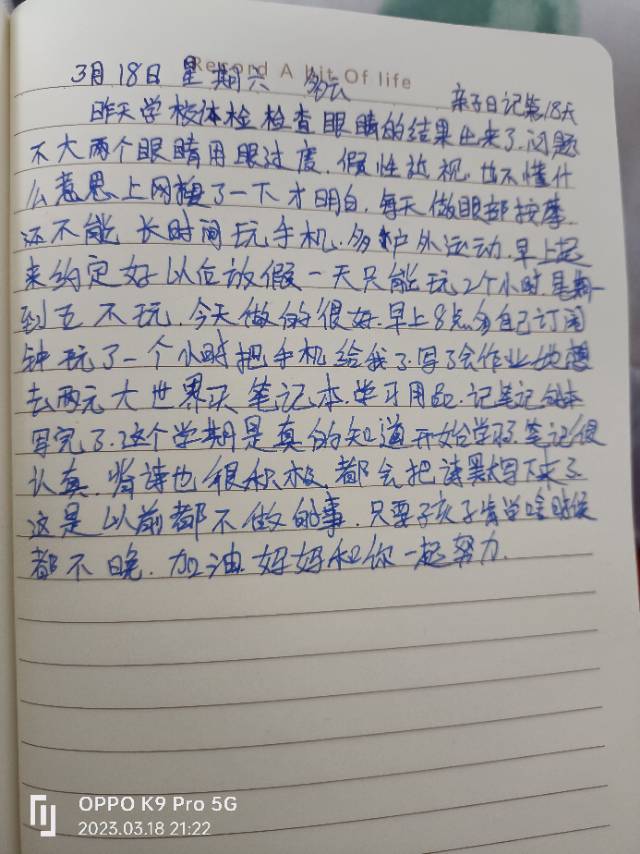 Record A bit Of life
3月18日 星期六 多云 亲子日记第18天
昨天学校体检检查眼睛的结果出来了.问题
不大两个眼睛用眼过度.假性近视.也不懂什
么意思上网搜了一下才明白.每天做眼部按摩.
还不能长时间玩手机.多户外运动.早上起
来约定好以后放假一天只能玩2个小时.星期一
到五不玩.今天做的很好.早上8点多自己订闹
钟玩了一个小时把手机给我了.写了会作业她想
去两元大世界买笔记本.学习用品.记笔记的本
写完了.这个学期是真的知道开始学习了.笔记很
认真.背诗也很积极.都会把诗默写下来了
这是以前都不做的事.只要孩子肯学啥时候
都不晚.加油.妈妈和你一起努力.
OPPO K9 Pro 5G
2023.03.18 21:22